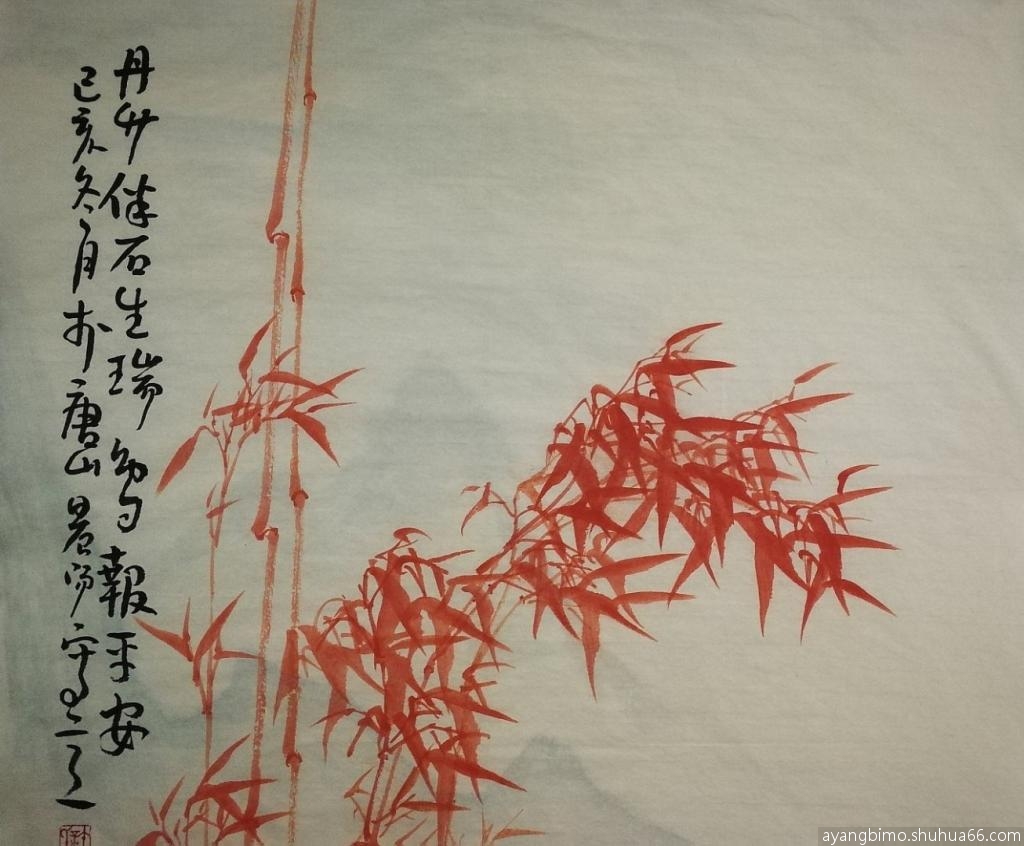 丹竹伴石生瑞報平安
己亥冬月於唐山
ayangbimo.shuhua66.com